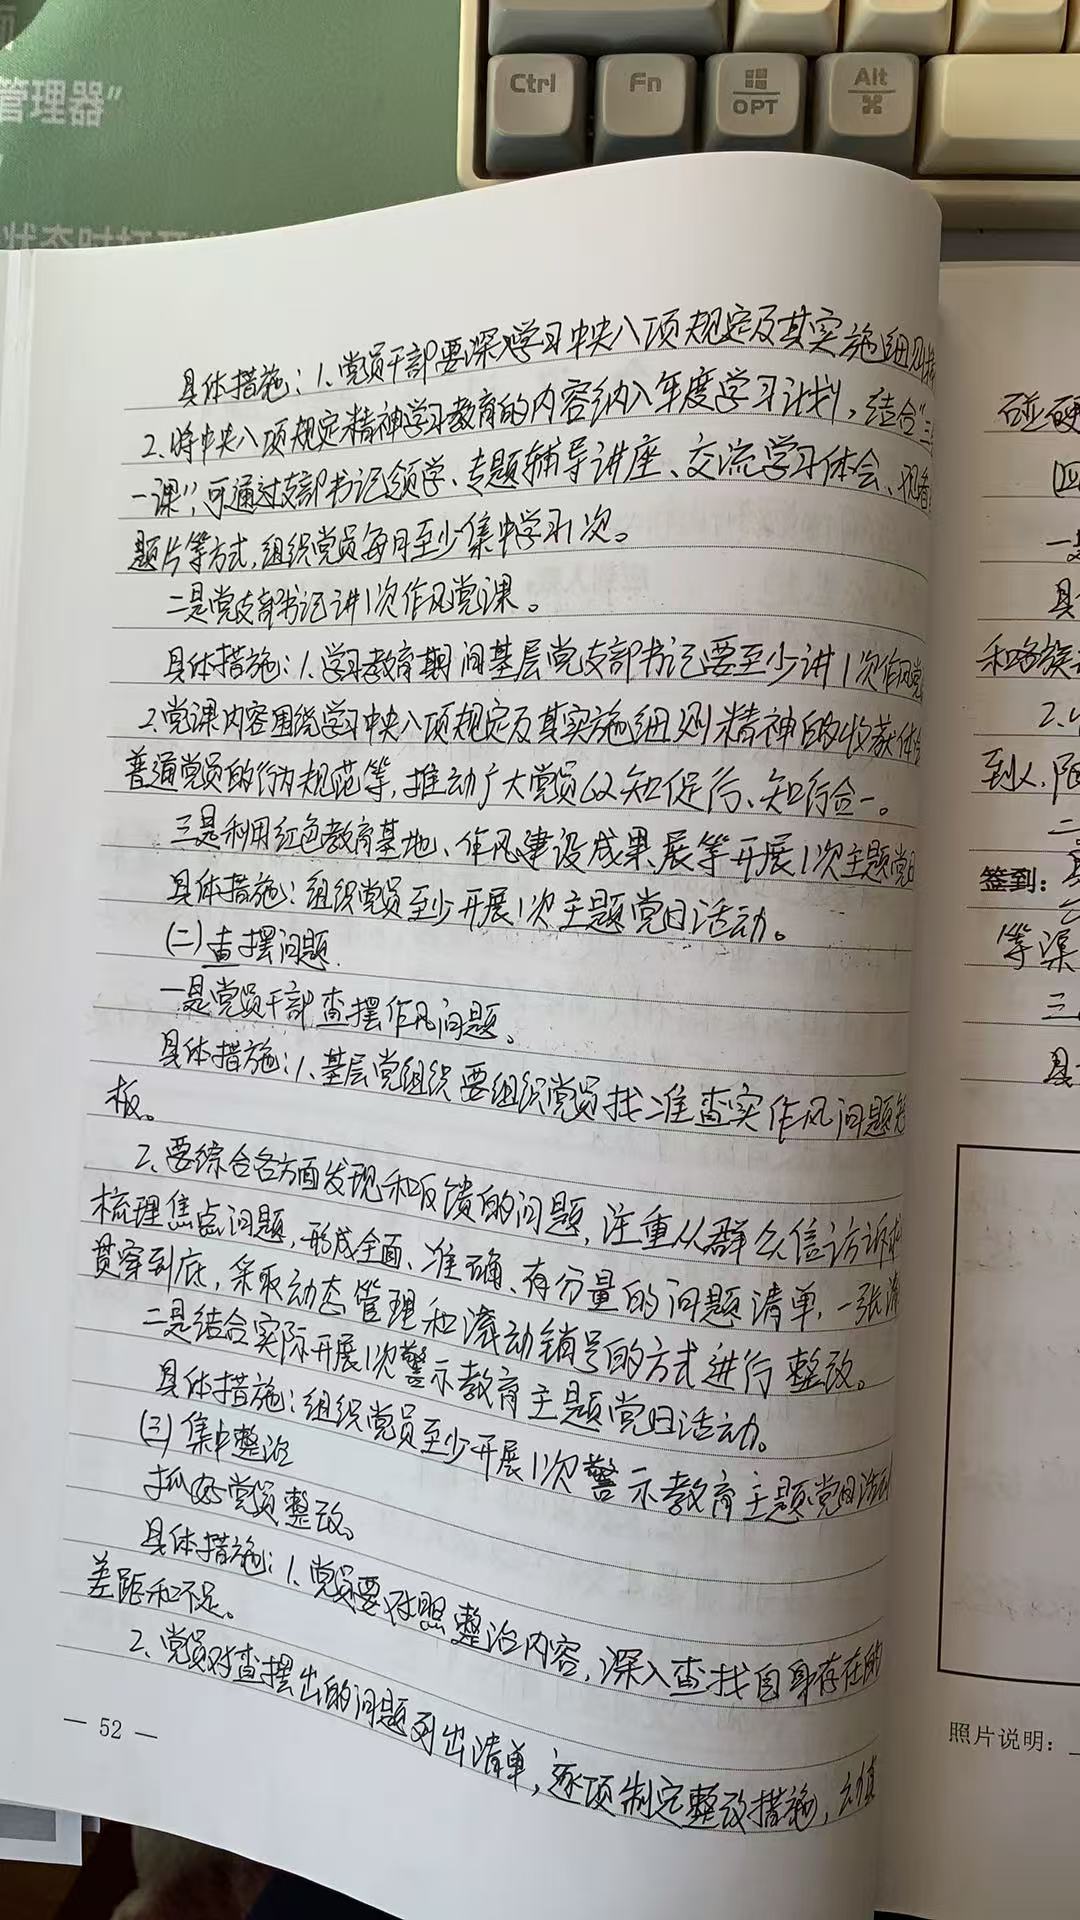 管理器”
状态时打开
Ctrl
Fn
OPT
Alt
具体措施：1、党员干部要深入学习中央八项规定及其实施细则精
2、将中央八项规定精神学习教育的内容纳入年度学习计划，结合“三
一课”，可通过支部书记领学、专题辅导讲座、交流学习体会、观看
题片等方式，组织党员每月至少集中学习1次。
二是党支部书记讲1次作风党课。
具体措施：1、学习教育期间基层党支部书记要至少讲1次作风党
2、党课内容围绕学习中央八项规定及其实施细则精神的收获体会
普通党员的行为规范等，推动广大党员以知促行、知行合一。
三是利用红色教育基地、作风建设成果展等开展1次主题党日
具体措施：组织党员至少开展1次主题党日活动。
(二)查摆问题
一是党员干部查摆作风问题。
具体措施：1、基层党组织要组织党员找准查实作风问题短
板。
2、要综合各方面发现和反馈的问题，注重从群众信访诉求
梳理焦点问题，形成全面、准确、有分量的问题清单，一张清
贯穿到底，采取动态管理和滚动销号的方式进行整改。
二是结合实际开展1次警示教育主题党日活动。
具体措施：组织党员至少开展1次警示教育主题党日活动
(三)集中整治
抓好党员整改。
具体措施：1、党员要对照整治内容，深入查找自身存在的
差距和不足。
2、党员对查摆出的问题列出清单，逐项制定整改措施，认真
— 52 —
碰硬
(四
一是
具
和各族
2、
到人、
二
签到：
等渠
三
具
照片说明：